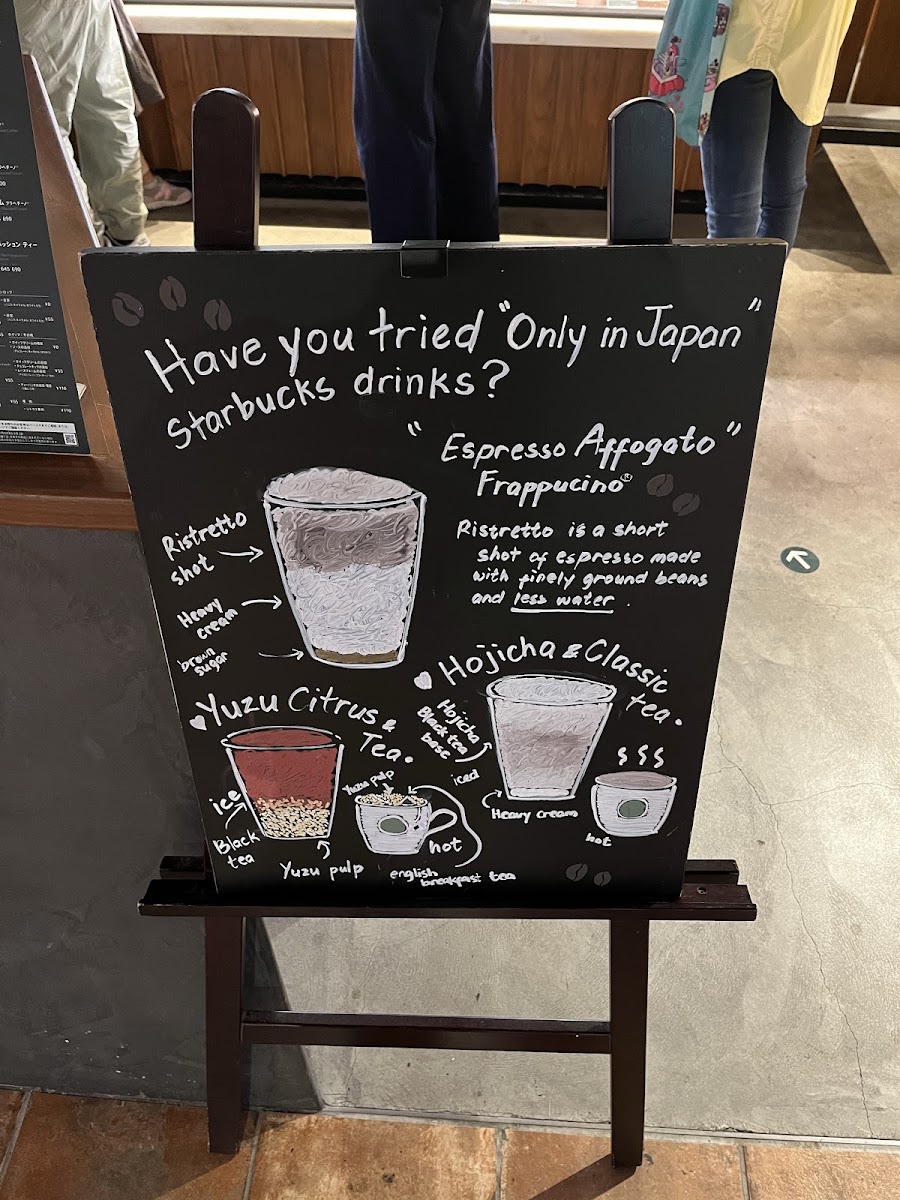 Have you tried "Only in Japan"
Starbucks drinks?
"Espresso Affogato"
Frappucino®
Ristretto is a short
shot of espresso made
with finely ground beans
and less water.
Ristretto
shot
Heavy
cream
brown
sugar
Yuzu Citrus &
Tea.
ice
Black
tea
Yuzu pulp
Yuzu pulp
hot
english
breakfast tea
Hojicha & Classic
tea.
Hojicha
Black tea
base
iced
Heavy cream
hot